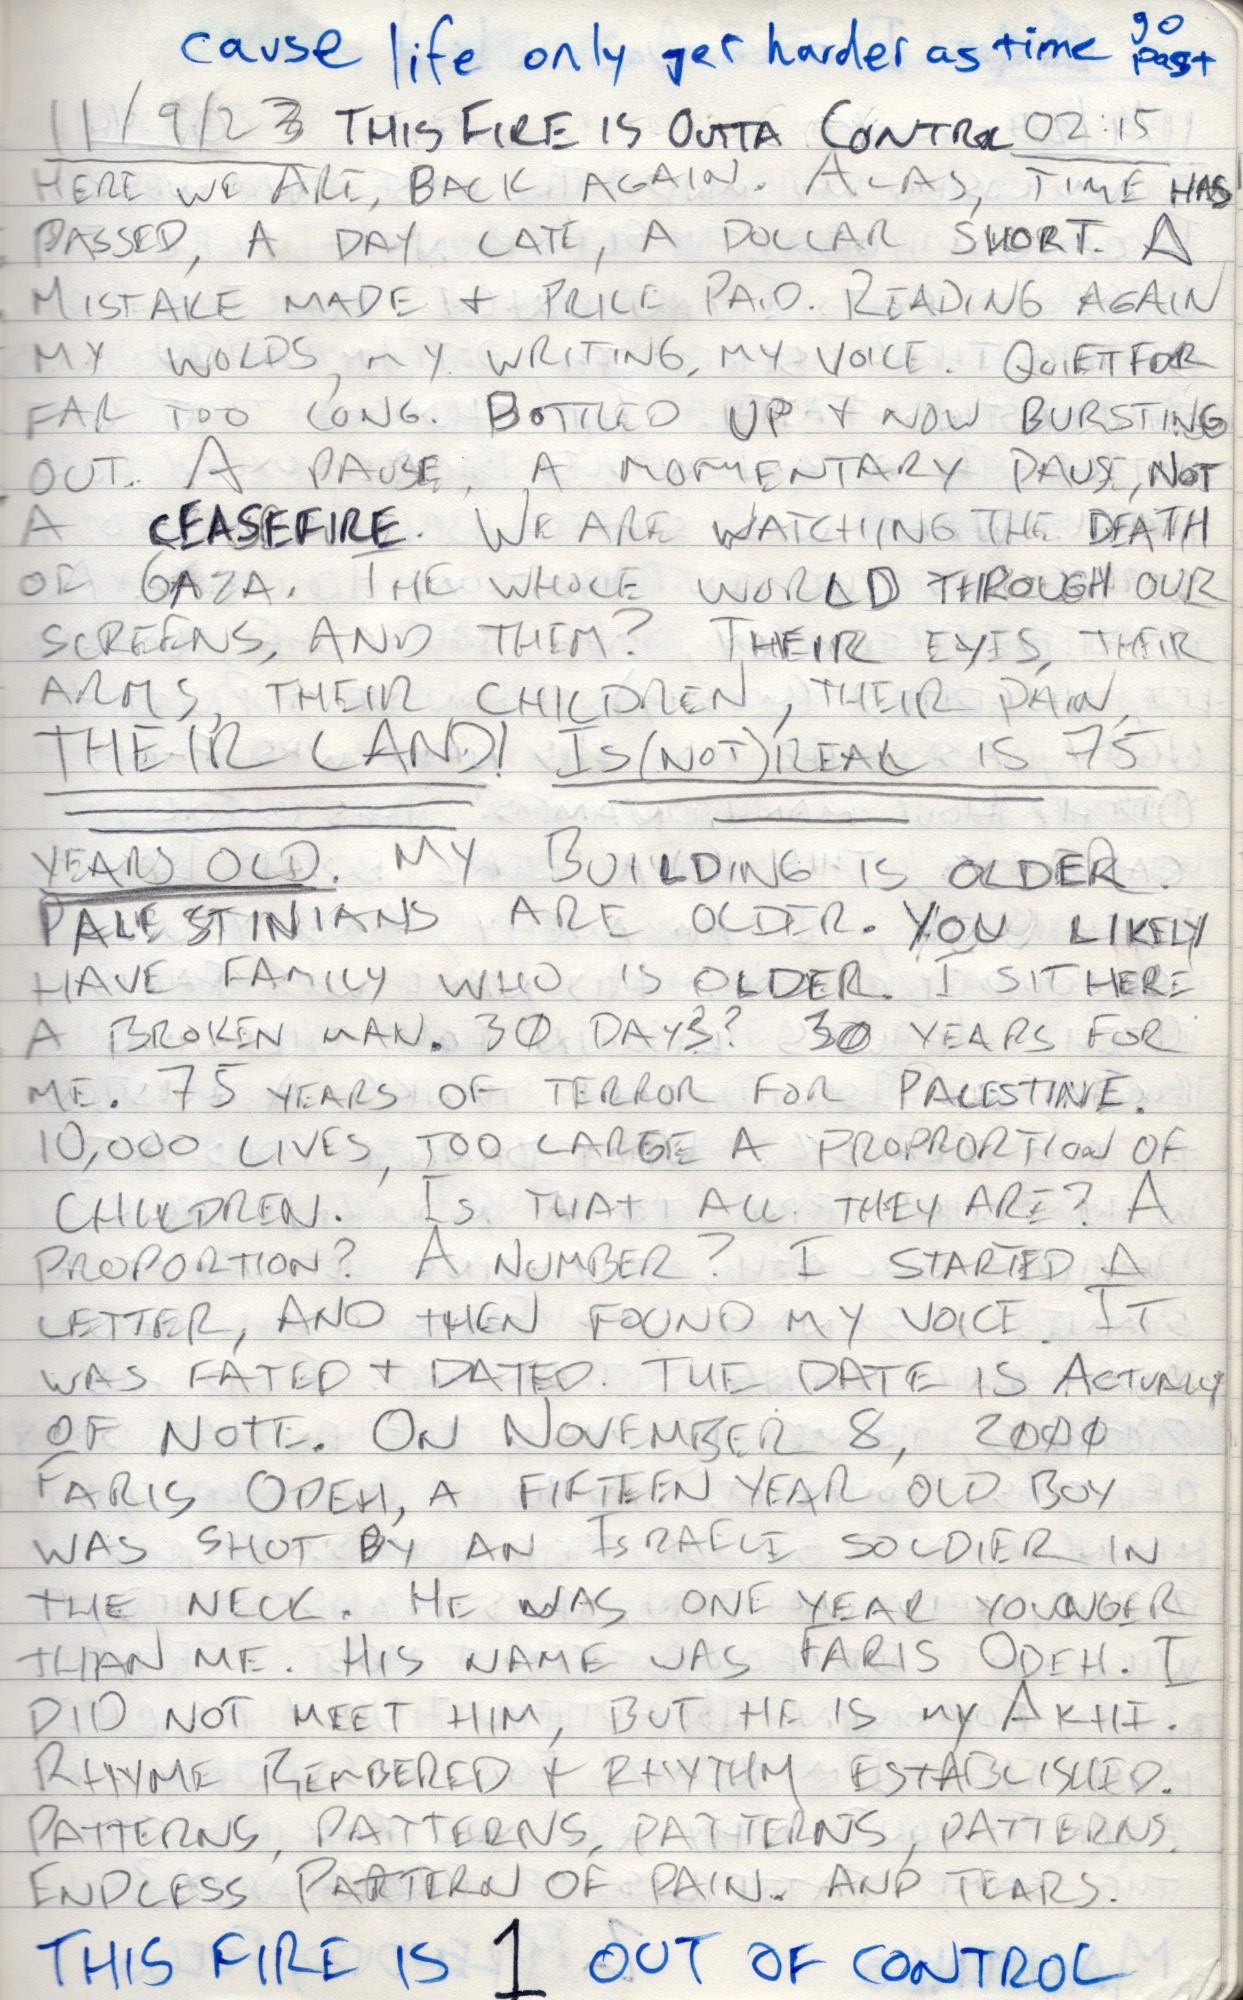 cause life only get harder as time go past
11/9/23 THIS FIRE IS OUTTA CONTROL 02:15
HERE WE ARE, BACK AGAIN. ALAS, TIME HAS
PASSED, A DAY LATE, A DOLLAR SHORT. A
MISTAKE MADE + PRICE PAID. READING AGAIN
MY WORDS, MY WRITING, MY VOICE. QUIET FOR
FAR TOO LONG. BOTTLED UP + NOW BURSTING
OUT. A PAUSE, A MOMENTARY PAUSE, NOT
A CEASEFIRE. WE ARE WATCHING THE DEATH
OF GAZA. THE WHOLE WORLD THROUGH OUR
SCREENS, AND THEM? THEIR EYES, THEIR
ARMS, THEIR CHILDREN, THEIR PAIN,
THEIR LAND! IS(NOT)REAL IS 75
YEARS OLD. MY BUILDING IS OLDER.
PALESTINIANS ARE OLDER. YOU LIKELY
HAVE FAMILY WHO IS OLDER. I SIT HERE
A BROKEN MAN. 30 DAYS? 30 YEARS FOR
ME. 75 YEARS OF TERROR FOR PALESTINE.
10,000 LIVES, TOO LARGE A PROPRORTION OF
CHILDREN. IS THAT ALL THEY ARE? A
PROPORTION? A NUMBER? I STARTED A
LETTER, AND THEN FOUND MY VOICE. IT
WAS FATED + DATED. THE DATE IS ACTUALLY
OF NOTE. ON NOVEMBER 8, 2000
FARIS ODEH, A FIFTEEN YEAR OLD BOY
WAS SHOT BY AN ISRAELI SOLDIER IN
THE NECK. HE WAS ONE YEAR YOUNGER
THAN ME. HIS NAME WAS FARIS ODEH. I
DID NOT MEET HIM, BUT HE IS MY AKHI.
RHYME REMBERED + RHYTHM ESTABLISHED.
PATTERNS, PATTERNS, PATTERNS, PATTERNS.
ENDLESS PATTERN OF PAIN. AND TEARS.
THIS FIRE IS 1 OUT OF CONTROL